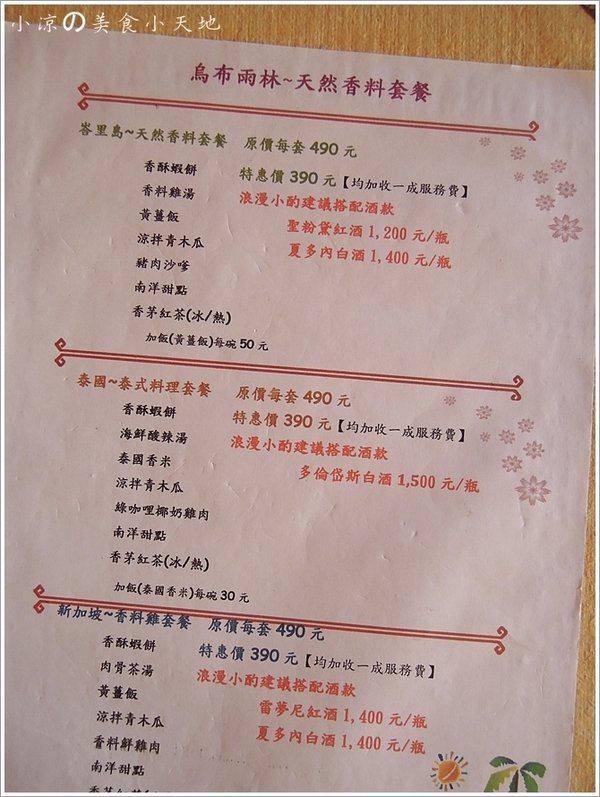 小涼の美食小天地
烏布雨林~天然香料套餐
峇里島~天然香料套餐 原價每套 490 元
香酥蝦餅
特惠價 390 元【均加收一成服務費】
香料雞湯
浪漫小酌建議搭配酒款
黃薑飯
聖粉黛紅酒 1,200 元/瓶
涼拌青木瓜
夏多內白酒 1,400 元/瓶
豬肉沙嗲
南洋甜點
香茅紅茶(冰/熱)
加飯(黃薑飯)每碗 50 元
泰國~泰式料理套餐 原價每套 490 元
香酥蝦餅
特惠價 390 元【均加收一成服務費】
海鮮酸辣湯
浪漫小酌建議搭配酒款
泰國香米
多倫岱斯白酒 1,500 元/瓶
涼拌青木瓜
綠咖哩椰奶雞肉
南洋甜點
香茅紅茶(冰/熱)
加飯(泰國香米)每碗 30 元
新加坡~香料雞套餐 原價每套 490 元
香酥蝦餅
特惠價 390 元【均加收一成服務費】
肉骨茶湯
浪漫小酌建議搭配酒款
黃薑飯
雷夢尼紅酒 1,400 元/瓶
涼拌青木瓜
夏多內白酒 1,400 元/瓶
香料鮮雞肉
南洋甜點